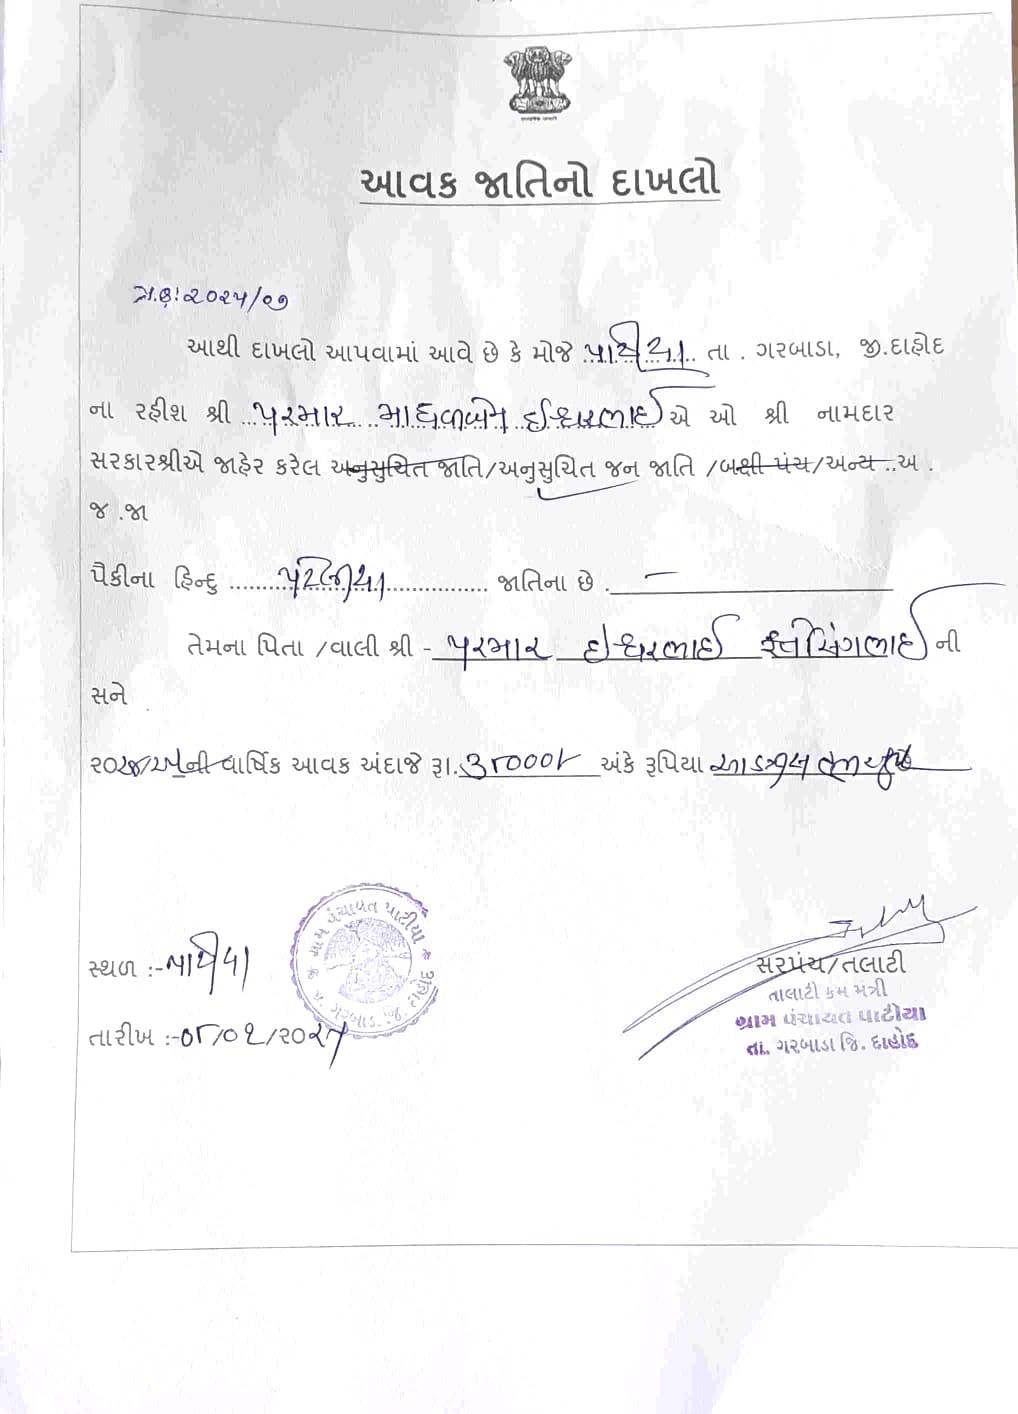 આવક જાતિનો દાખલો
૨૦૨૫/૦૭
આથી દાખલો આપવામાં આવે છે કે મોજે પાટીયા તા . ગરબાડા, જી.દાહોદ
ના રહીશ શ્રી પરમાર માધવાબેન ઈશ્વરભાઈ એ ઓ શ્રી નામદાર
સરકારશ્રીએ જાહેર કરેલ અનુસુચિત જાતિ/અનુસુચિત જન જાતિ /બક્ષી પંચ/અન્ય ..અ .
જ .જા
પૈકીના હિન્દુ પટલીયા જાતિના છે .
તેમના પિતા /વાલી શ્રી - પરમાર ઈશ્વરભાઈ સિંગભાઈ ની
સને
ની વાર્ષિક આવક અંદાજે રૂા. અંકે રૂપિયા
ગ્રામ પંચાયત પાટીયા
તા. ગરબાડા, જી. દાહોદ
સ્થળ :- પાટીયા
તારીખ :-
સરપંચ/તલાટી
તાલાટી કમ મંત્રી
ગ્રામ પંચાયત પાટીયા
તા. ગરબાડા જિ. દાહોદ